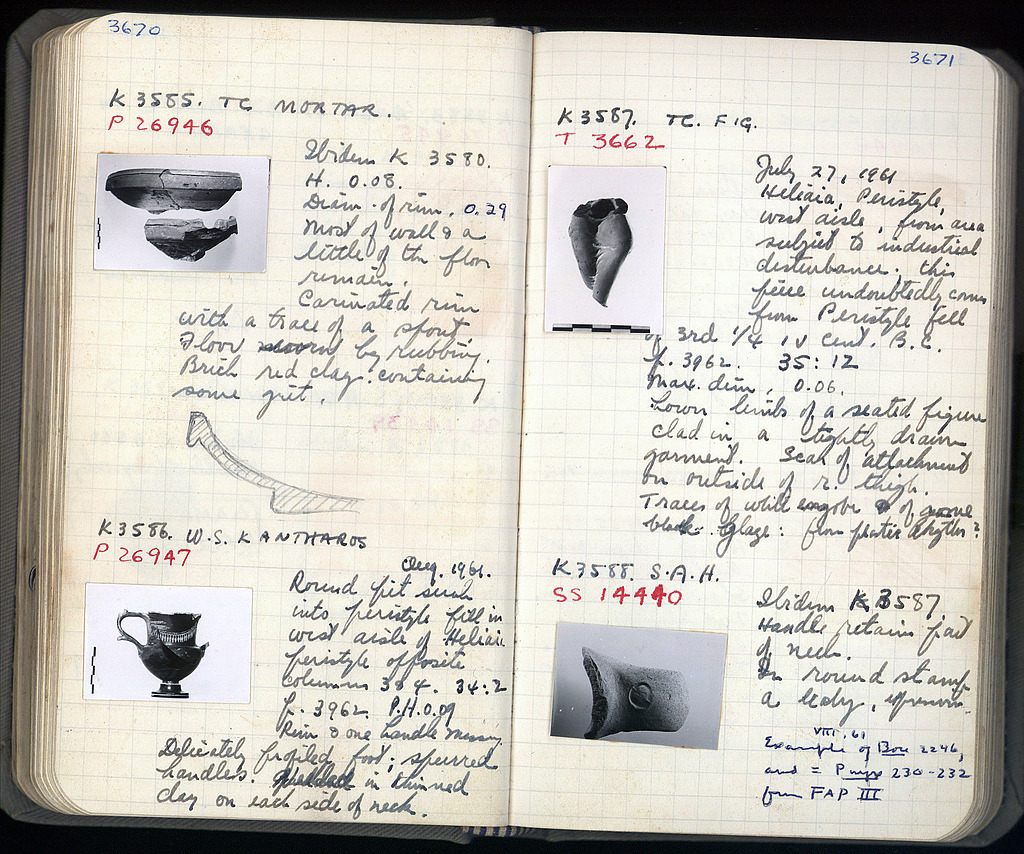 3670
K 3585. TC MORTAR.
P 26946
Ibidem K 3580.
H. 0.08.
Diam. of rim. 0.29
Most of wall & a
little of the floor
remain.
Carinated rim
with a trace of a spout
Floor worn by rubbing.
Brick red clay containing
some grit.
K 3586. W.S. KANTHAROS
P 26947
Aug. 1961.
Round pit sunk
into peristyle fill in
west aisle of Heliaia
peristyle opposite
columns 3 & 4. 34:2
p. 3962. P.H. 0.09
Rim & one handle missing
Delicately profiled foot; spurred
handles. in thinned
clay on each side of neck.
3671
K 3587. TC. FIG.
T 3662
July 27, 1961
Heliaia, Peristyle,
west aisle, from area
subject to industrial
disturbance; this
piece undoubtedly comes
from Peristyle fill
of 3rd 1/4 IV cent. B.C.
p. 3962. 35:12
Max. dim. 0.06.
Lower limbs of a seated figure
clad in a tightly drawn
garment. Scar of attachment
on outside of r. thigh.
Traces of white engobe & of some
black glaze: from plastic rhyton?
K 3588. S.A.H.
SS 14440
Ibidem K 3587
Handle retains part
of neck.
In round stamp
a
VIII.61
Example of Bon 2246,
and = P 230-232
from FAP III